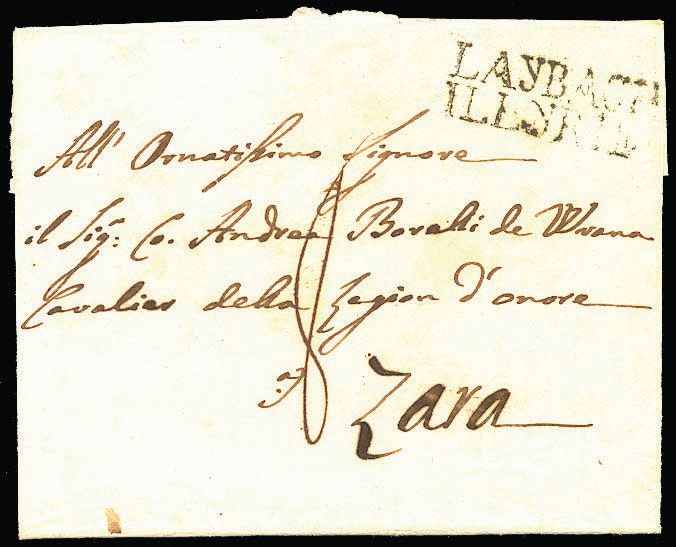 LAYBACH
ILLYRIE
All' Ornatissimo Signore
il Sig.r Co. Andrea Borelli de Wrana
Cavalier della Legion d'onore
a
Zara